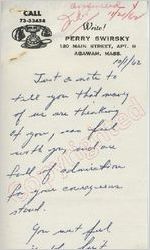 CALL
73-33458
Answered
Write!
PERRY SWIRSKY
180 MAIN STREET, APT. H
AGAWAM, MASS.
10/1/62
Just a note to
tell you that many
of us are thinking
of you, and feel
with you and are
full of admiration
for your courageous
stand.
You must feel